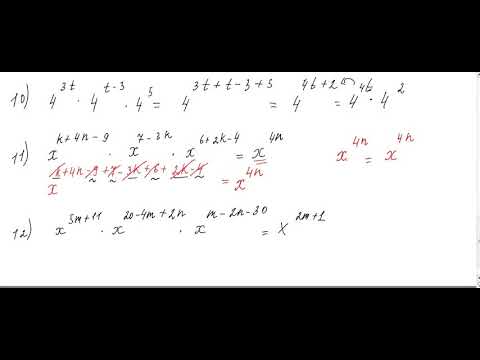 10) 4^{3t} · 4^{t-3} · 4^{5} = 4^{3t+t-3+5} = 4^{4t+2} = 4^{4t} · 4^{2}
11) x^{k+4n-9} · x^{7-3k} · x^{6+2k-4} = x^{4n} x^{4n} = x^{4n}
x^{k+4n-9+7-3k+6+2k-4} = x^{4n}
12) x^{5m+11} · x^{20-4m+2n} · x^{m-2n-30} = x^{2m+1}